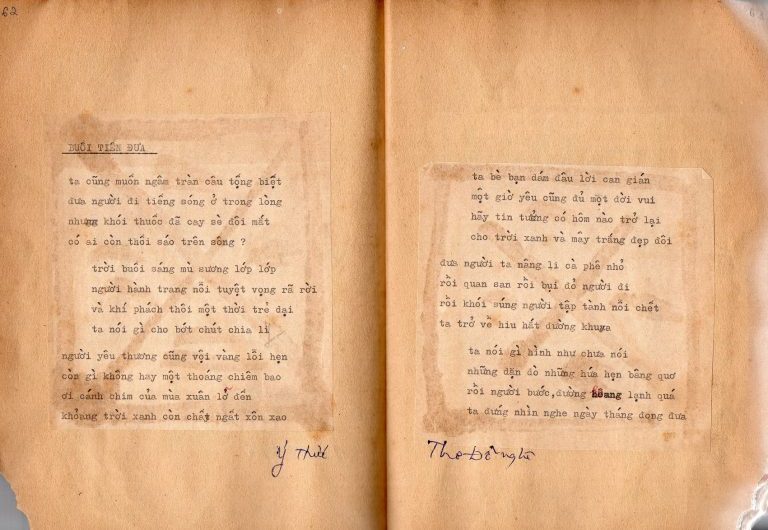 62
BUỔI TIỄN ĐƯA
ta cũng muốn ngâm tràn câu tống biệt
đưa người đi tiếng sóng ở trong lòng
nhưng khói thuốc đã cay sè đôi mắt
có ai còn thổi sáo trên sông ?
trời buổi sáng mù sương lớp lớp
người hành trang nỗi tuyệt vọng rã rời
và khí phách thôi một thời trẻ dại
ta nói gì cho bớt chút chia li
người yêu thương cũng vội vàng lỗi hẹn
còn gì không hay một thoáng chiêm bao
ơi cánh chim của mùa xuân lỡ đến
khoảng trời xanh còn chất ngất xôn xao
Ý Thức
ta bè bạn dám đâu lời can gián
một giờ yêu cũng đủ một đời vui
hãy tin tưởng có hôm nào trở lại
cho trời xanh và mây trắng đẹp đôi
đưa người ta nâng li cà phê nhỏ
rồi quan san rồi bụi đỏ người đi
rồi khói súng người tập tành nỗi chết
ta trở về hiu hắt đường khuya
ta nói gì hình như chưa nói
những dặn dò những hứa hẹn bâng quơ
rồi người bước,đường hoang lạnh quá
ta đứng nhìn nghe ngày tháng đong đưa